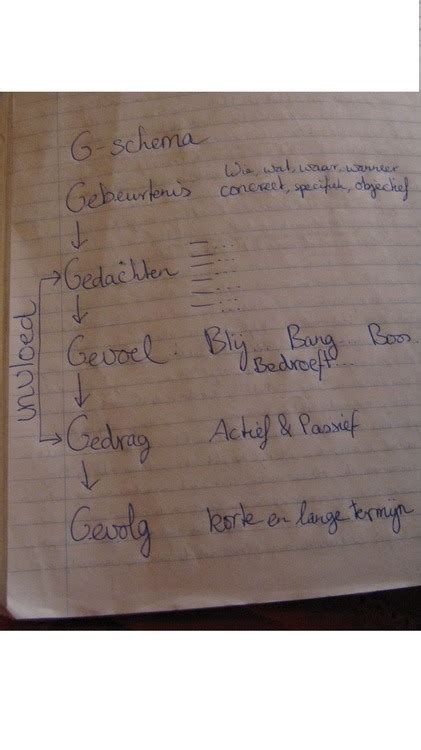 G-schema
Wie, wat, waar, wanneer
Gebeurtenis concreet, specifiek, objectief
Gedachten
invloed
Gevoel. Blij... Bang Boos
Bedroeft...
Gedrag Actief & Passief
Gevolg korte en lange termijn